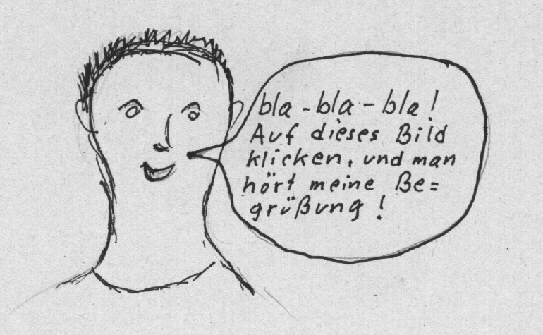 bla-bla-bla!
Auf dieses Bild
klicken, und man
hört meine Be=
grüßung!